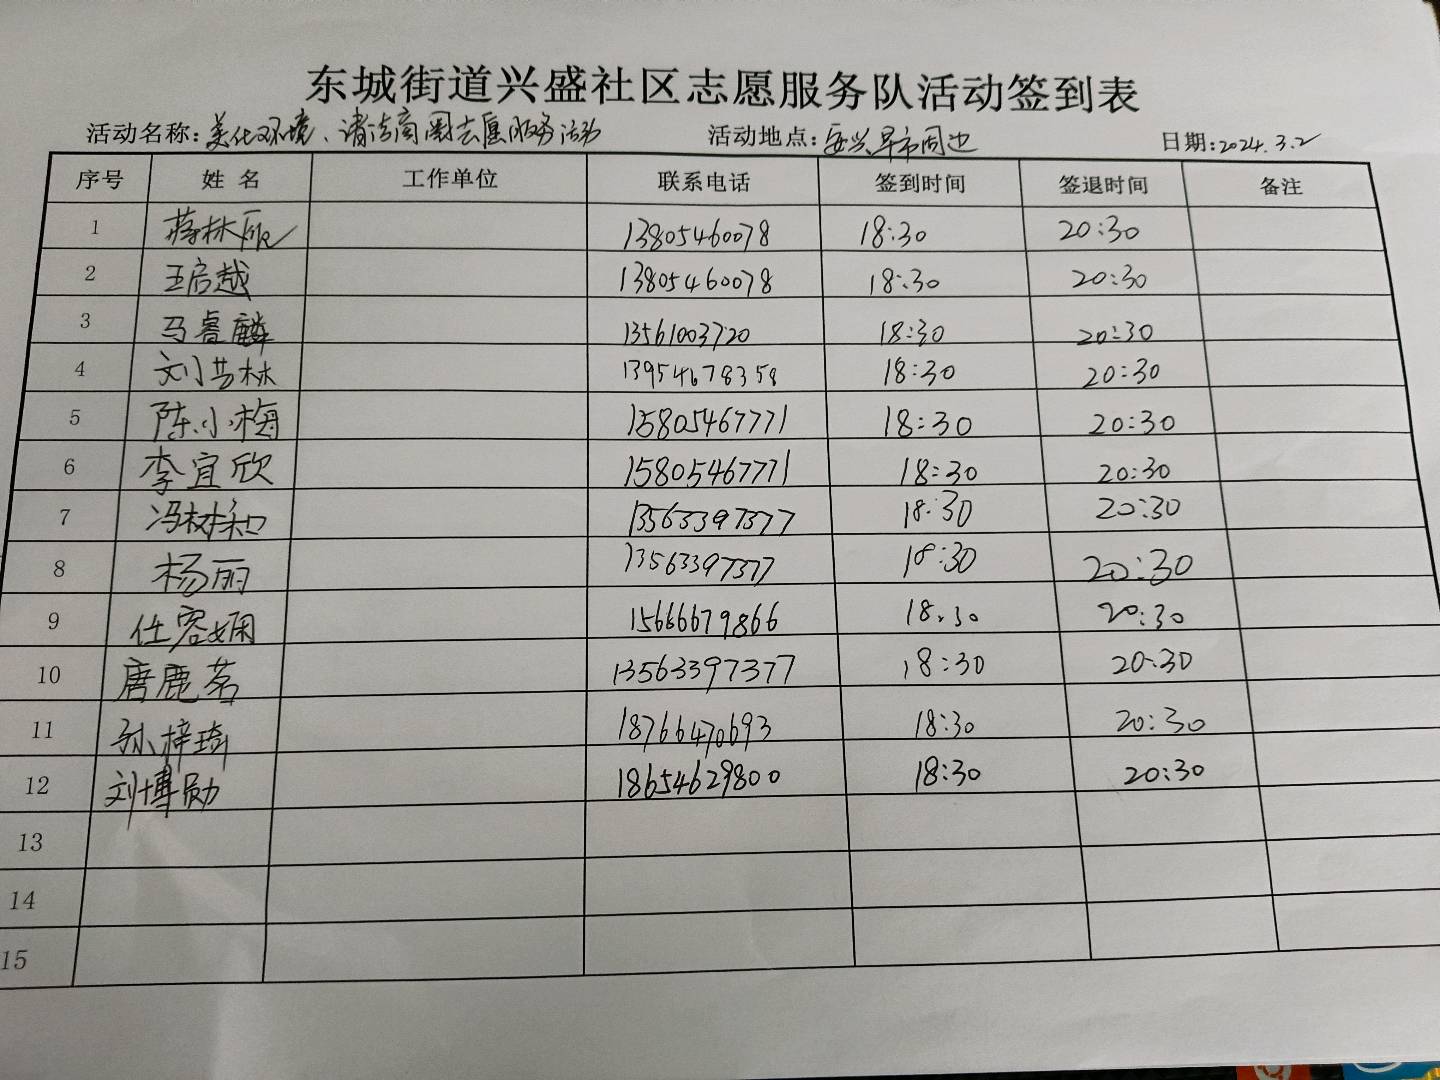 东城街道兴盛社区志愿服务队活动签到表
活动名称:美化环境、清洁商圈志愿服务活动 活动地点:安兴早市周边 日期:2024.3.2
序号 姓名 工作单位 联系电话 签到时间 签退时间 备注
1 蒋林 13805460078 18:30 20:30
2 王启越 13805460078 18:30 20:30
3 马睿麟 13561003720 18:30 20:30
4 刘芸林 13954678358 18:30 20:30
5 陈小梅 15805467771 18:30 20:30
6 李宜欣 15805467771 18:30 20:30
7 冯树和 13563397377 18:30 20:30
8 杨丽 13563397377 18:30 20:30
9 任容娴 15666679866 18:30 20:30
10 唐鹿茗 13563397377 18:30 20:30
11 孙梓琦 18766470693 18:30 20:30
12 刘博勋 18654629800 18:30 20:30
13
14
15